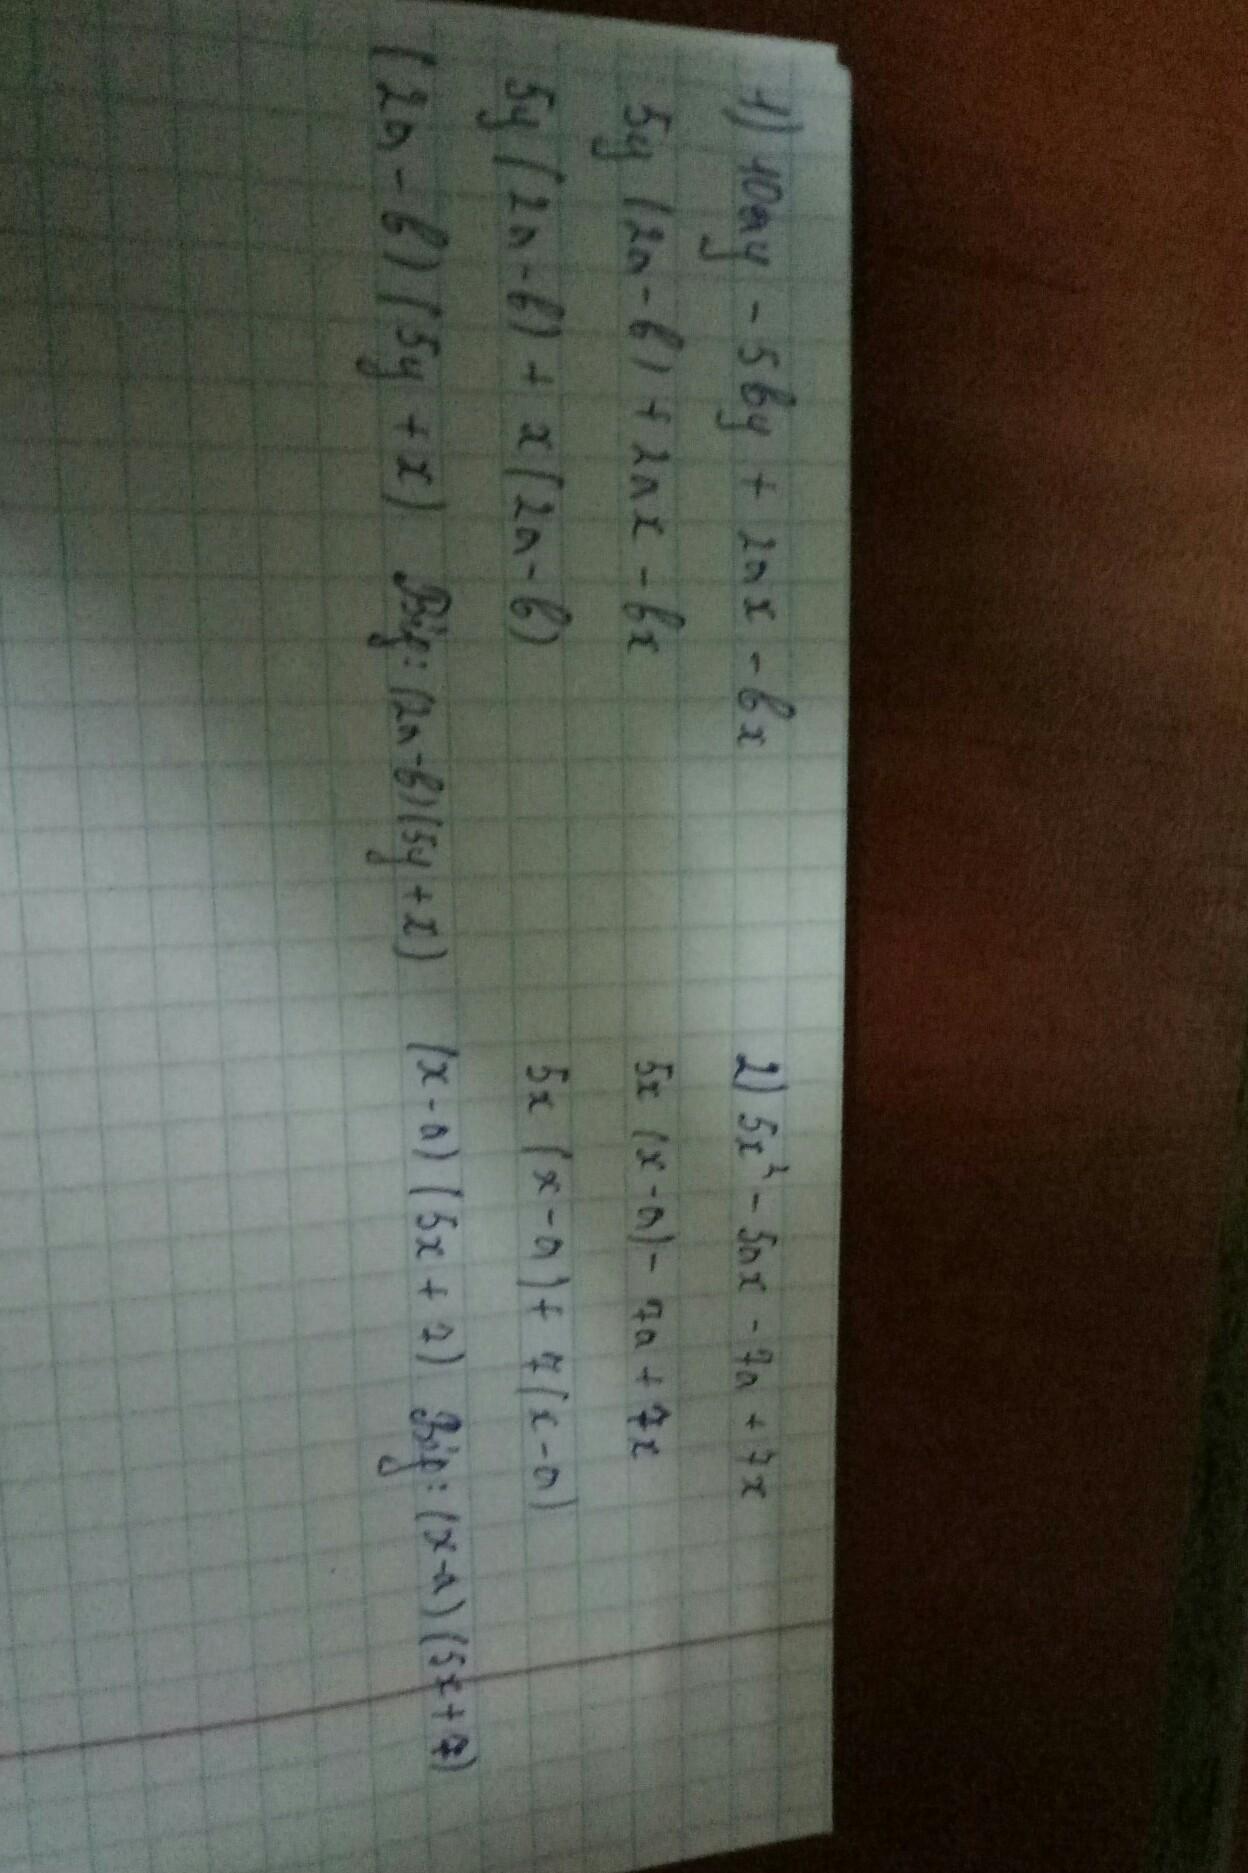 1) 10ay - 5by + 2ax - bx
5y (2a - b) + 2ax - bx
5y (2a - b) + x (2a - b)
(2a - b) (5y + x) Від: (2a - b) (5y + x)
2) 5x² - 5ax - 7a + 7x
5x (x - a) - 7a + 7x
5x (x - a) + 7 (x - a)
(x - a) (5x + 7) Від: (x - a) (5x + 7)